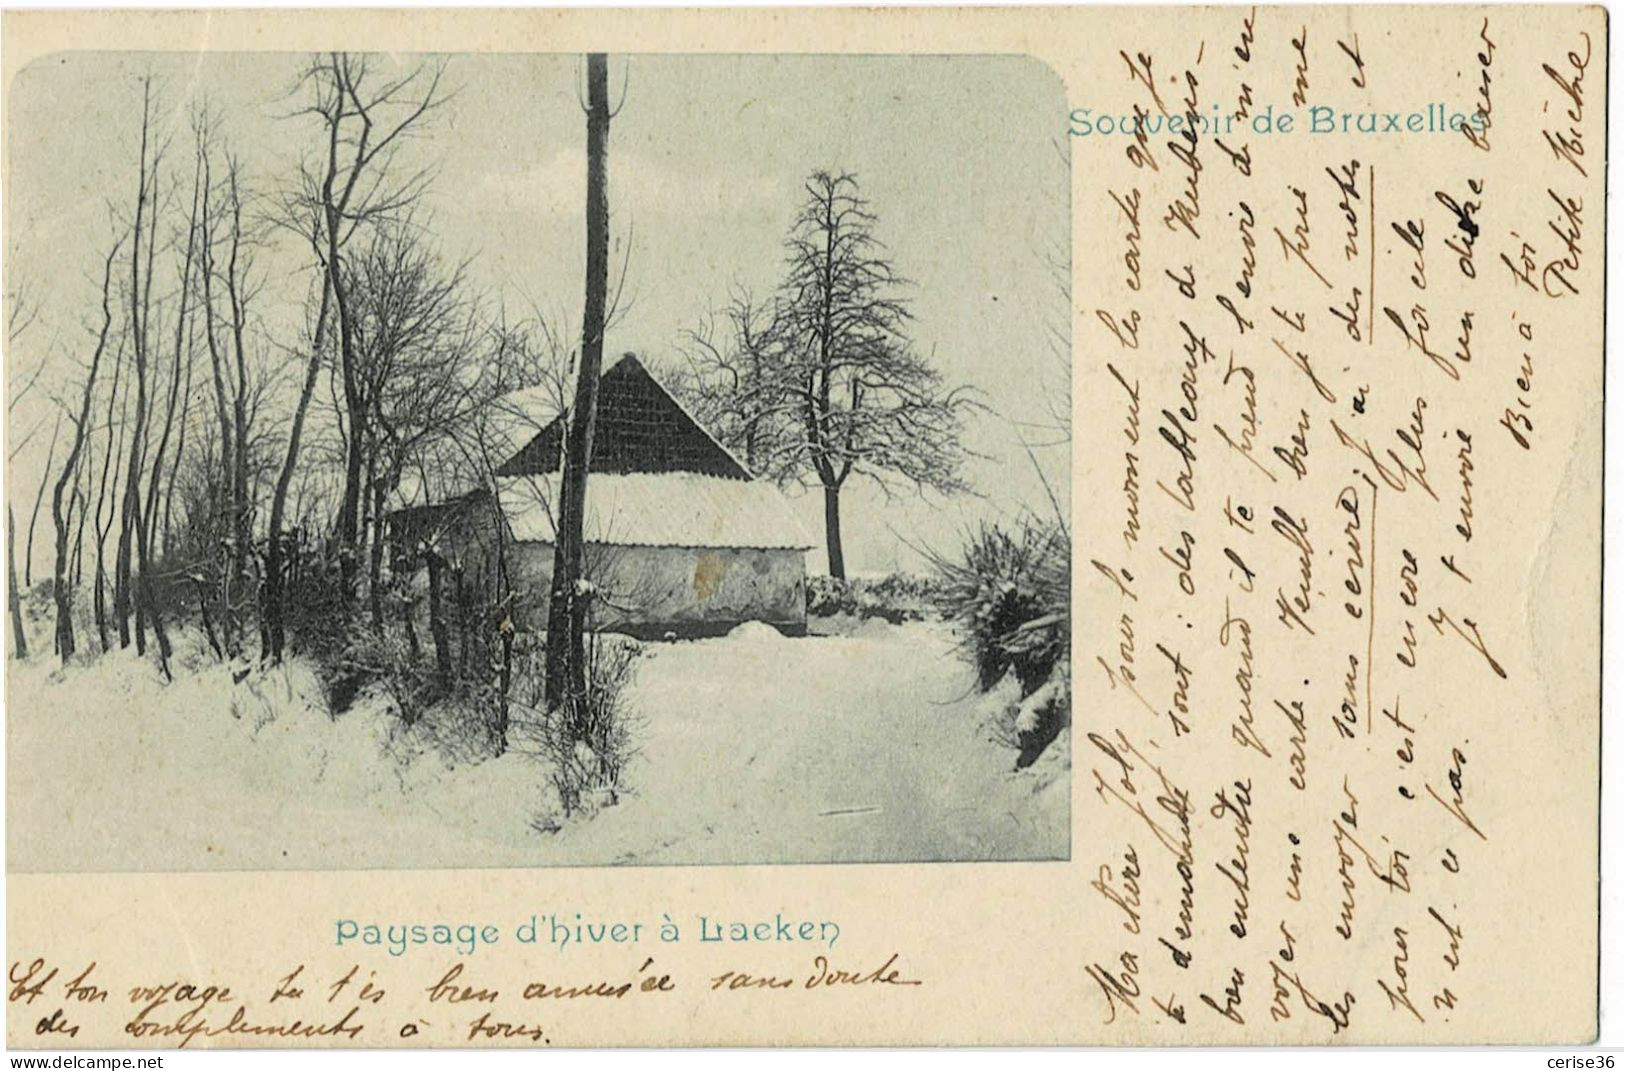 Souvenir de Bruxelles
Ma chère Joly, pour le moment les cartes que je
te demande sont : des tableaux de Rubens_
bien entendu quand il te prend l'envie d m'en
voyer une carte. Veuille bien je te prie me
les envoyer sans ecrire, j'ai des notes et
pour toi c'est encore plus facile
n'est ce pas. Je t envoie un baiser
Bien à toi
Petite
Paysage d'hiver à Laeken
Et ton voyage tu t'es bien amusée sans doute
des compliments à tous.
cerise36